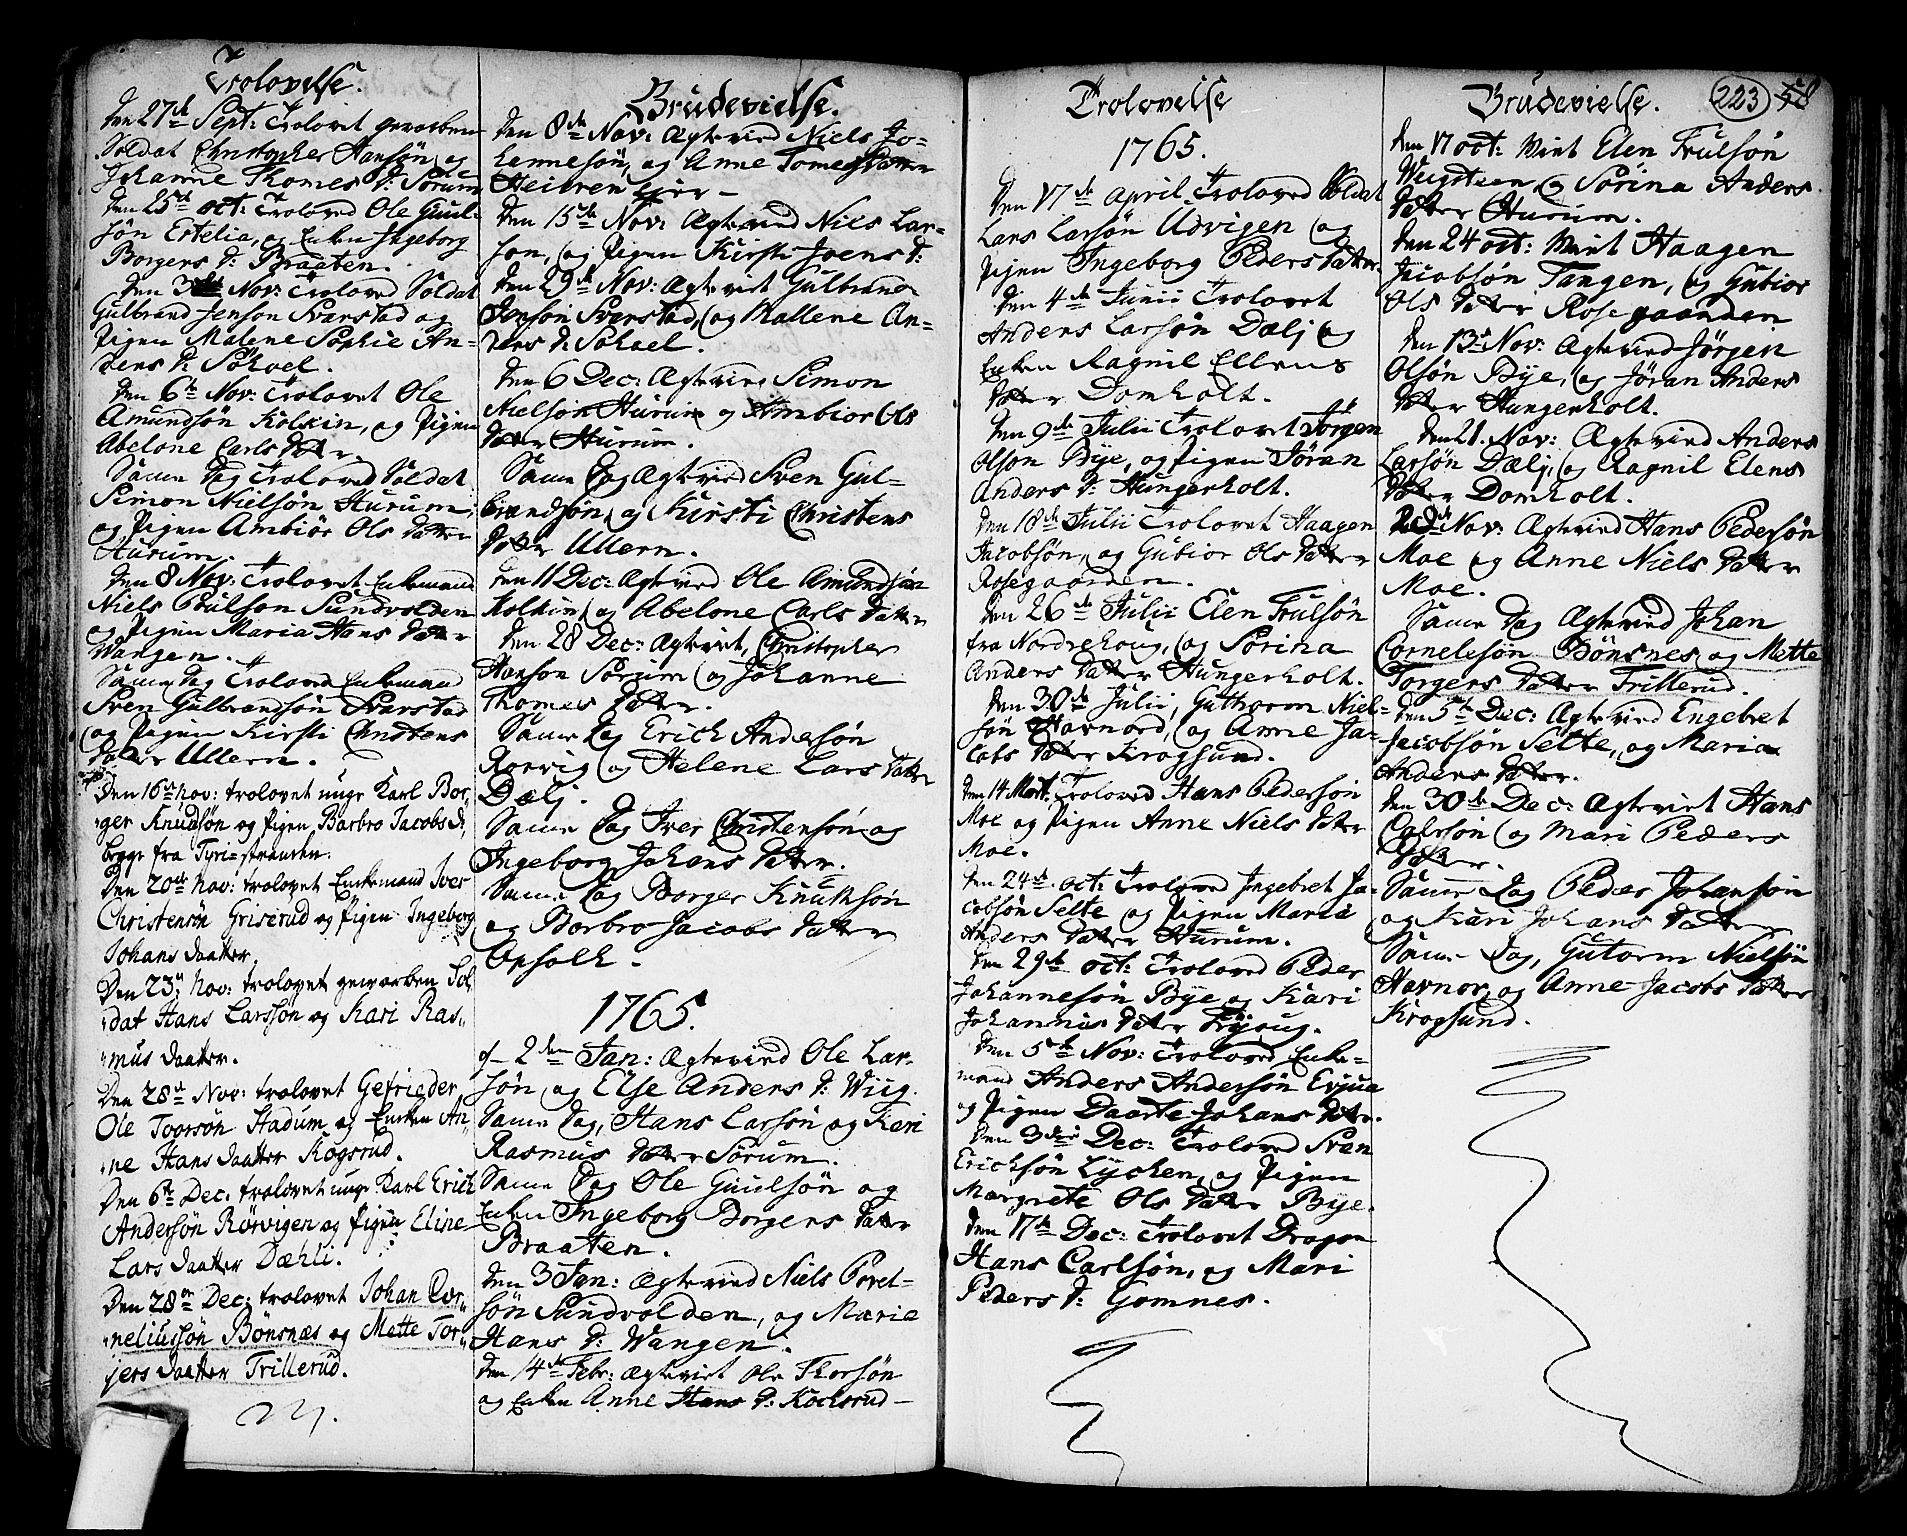 Trolovelse.
den 27de Sept: Trolovet gevorben
Soldat Christopher Hansøn, og
Johanne Thomes D: Sørum
den 25de oct: Troloved Ole Guul-
søn Estelia, og Enken Ingeborg
Borgers D: Braaten.
den 3die Nov: Troloved Soldat
Gulbrand Jenson Svarstad og
Pigen Malene Sophie An-
ders D: Sohoel.
den 6te Nov: Trolovet Ole
Amundsøn Kolkin, og Pigen
Abelone Carls Datter.
Samme Dag Troloved Soldat
Simon Nielsøn Hurum,
og Pigen Ambiør Ols Datter
Hurum.
den 8 Nov: Trolovet Enkemand
Niels Poulson Sundvolden
og Pigen Maria Hans Datter
Wangen.
Samme Dag Troloved Enkemand
Sven Gulbrandsøn Svarstad
og Pigen Kirsti Christens
Datter Ullern.
Den 16de nov: trolovet unge Karl Bor-
ger Knudsøn og Pigen Barbro Jacobs D,
begge fra Tyri-stranden.
Den 20de nov: trolovet Enkemand Iver
Christensøn Griserud og Pigen Ingeborg
Johans Daatter.
Den 23. nov: trolovet gevorben Sol-
dat Hans Larssøn og Kari Ras-
mus Daatter.
Den 28de Nov: trolovet Gefrieder
Ole Toorsøn Stadum og Enken An-
ne Hans Daatter Kogsrud.
Den 6te Dec: trolovet unge Karl Erich
Andersøn Rørvigen og Pigen Eline
Lars Daatter Dæhli.
Den 28de Dec: trolovet Johan Cor-
neliussøn Bønsnæs og Mette Tor-
jers Daatter Trillerud.
Brudevielse.
den 8de Nov: Ægtevied Niels Jo-
hannesøn, og Anne Tomes Datter
den 15de Nov: Ægtevied Niels Lar-
son, og Pigen Kirsti Joens D:
den 29de Nov: Ægteviet Gulbrand
Jenson Svarstad, og Mallene An-
ders D: Sohoel.
den 6 Dec: Ægtevied Simon
Nielsøn Hurum og Ambior Ols
Datter Hurum.
Samme Dag Ægtevied Sven Gul-
brandsøn, og Kirsti Christens
Datter Ullern.
den 11 Dec: Ægtevied Ole Amundsøn
Kolkin, og Abelone Carls Datter
den 28 Dec: Ægteviet, Christopher
Hanson Sørum og Johanne
Thomes Datter.
Samme Dag Erich Andersøn
Rorvig og Helene Lars Datter
Dælj.
Samme Dag Iver Christensøn og
Ingeborg Johans Datter.
Samme Dag Borger Knutsøn
og Borbro Jacobs Datter
Opsolh.
1765.
2den Jan: Ægtevied Ole Lar-
søn og Else Anders D: Wiig.
Samme Dag, Hans Larsøn og Kari
Rasmus Datter Sørum.
Samme Dag Ole Guulsøn og
Enken Ingeborg Borgers Datter
Braaten.
den 3 Jan: Ægtevied Niels Povel-
søn Sundvolden, og Maria
Hans D: Wangen.
den 14de Febr: Ægteviet Ole Thorsøn
og Enken Anne Hans D: Kocksrud
Trolovelse
1765.
den 17de April Troloved Soldat
Lars Larsøn Udvigen og
Pigen Ingeborg Peders Datter.
den 4de Junii Trolovet
Anders Larsøn Dælj og
Enken Ragnil Ellens
Datter Domholt.
den 9de Julii Trolovet Jørgen
Olson Bye, og Pigen Jøran
Anders D: Hungerholt.
den 18de Julii Trolovet Haagen
Jacobsøn, og Gubior Ols Datter
Rosegaarden.
den 26de Julii Elen Trulsøn
fra Nordrehoug, og Sørina
Anders Datter Hungerholt.
den 30de Julii, Guttorm Niel-
søn Havnord, og Anne Ja-
cobs Datter Krogsund.
den 14 Mart: Troloved Hans Pedersøn
Moe og Pigen Anne Niels Datter
Moe.
den 24de oct: Troloved Ingebret Ja-
cobsøn Selte og Pigen Maria
Anders Datter Hurum.
den 29de oct: Troloved Peder
Johannesøn Bye og Kari
Johannis Datter
den 5te Nov: Troloved Enke-
mand Anders Andersøn Evjua
og Pigen Daarte Johans Datter.
den 3die Dec: Troloved Sven
Ericksøn Lychen, og Pigen
Margrete Ols Datter Bye.
den 17de Dec: Trolovet Dragon
Hans Carlsøn, og Mari
Peders D: Gomnes.
Brudevielse.
223 58
den 17 oct: Viet Elen Trulsøn
Weigsteen og Sørina Anders
Datter Hurum.
den 24 oct: Viet Haagen
Jacobsøn Tangen, og Gubior
Ols Datter Rosegaarden
den 13de Nov: Ægtevied Jørgen
Olsøn Bye, og Jøran Anders
Datter Hungerholt.
den 21. Nov: Ægtevied Anders
Larsøn Dælj, og Ragnil Elens
Datter Domholt.
Nov: Ægtevied Hans Pedersøn
Moe og Anne Niels Datter
Moe.
Samme Dag Ægtevied Johan
Cornelesøn Bønsnes og Mette
Torgers Datter Trillerud.
den 5te Dec: Ægtevied Engebret
Jacobsøn Selte, og Maria
Anders Datter.
den 30de Dec: Ægteviet Hans
Carlsøn og Mari Peders
Datter.
Samme Dag Peder Johansøn
og Kari Johans Datter
Samme Dag, Gutorm Nielsøn
Havnor, og Anne Jacobs Datter
Krogsund.